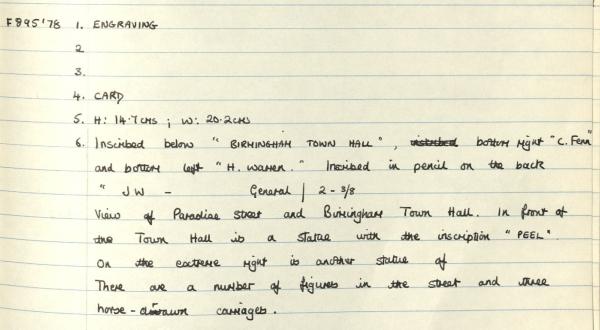 F895'78 1. ENGRAVING
2
3.
4. CARD
5. H: 14.7cms ; W: 20.2cms
6. Inscribed below "BIRMINGHAM TOWN HALL", inscribed bottom right "C. Fenn"
and bottom left "H. Warren." Inscribed in pencil on the back
" JW - General | 2 - 3/8
View of Paradise Street and Birmingham Town Hall. In front of
the Town Hall is a statue with the inscription "PEEL".
On the extreme right is another statue of
There are a number of figures in the street and three
horse-drawn carriages.